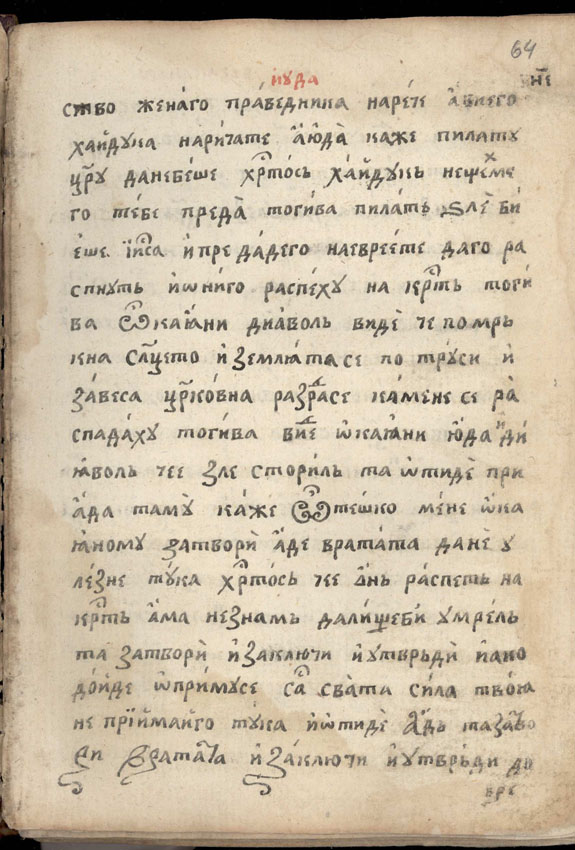 64
їꙋда
не
ство женаго праведника нарече а внего
хайдука наричате а їюда каже пилатꙋ
цр҃ꙋ данебеше хр҃тось хайдукь нещеме
го тебе преда тогива пилать ѕле би
еше їи҃са и предадего наевреете даго ра
спнуть иѡниго распеху на кр҃ть тоги
ва ѿкаꙗни диаволь виде че помрь
кна слн҃цето и землꙗтасе потруси и
завеса цр҃ковна раздрасе камене се ра
спадаху тогива виде ѡкаꙗни юда и ди
ꙗволь чее зле сториль та ѡтиде при
ада тамꙋ каже ѿ тешко мене ѡка
ꙗному затвори аде вратата дане у
лезне тука хр҃тось чее д҃нь распеть на
кр҃ть ама незнамь далищеби умрель
та затвори и заключи и утврьди и ако
дойде ѡпримусе са свата сила твоꙗ
не прїймайго тука и ѡтиде адь та затво
ри вратата и заключи и утврьди до
вре